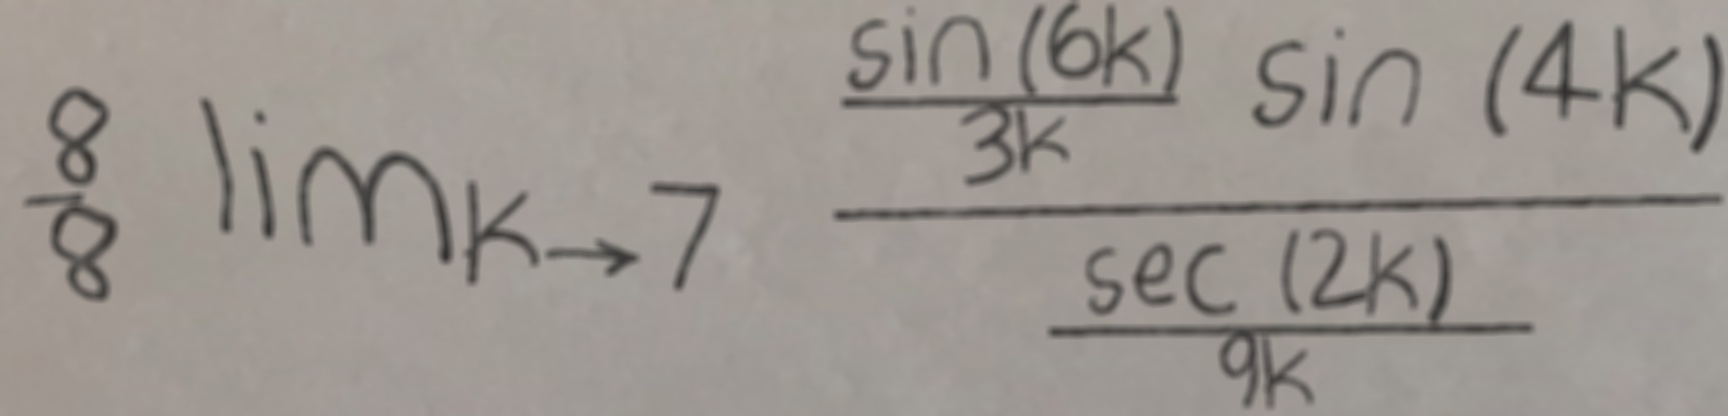 \frac{8}{8} \lim_{k \to 7} \frac{\frac{\sin(6k)}{3k} \sin(4k)}{\frac{\sec(2k)}{9k}}